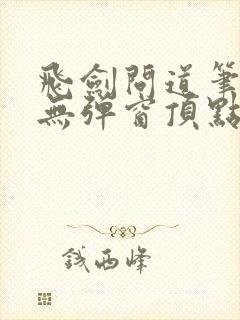 飛劍問道筆
無彈窗頂點
錢西峰